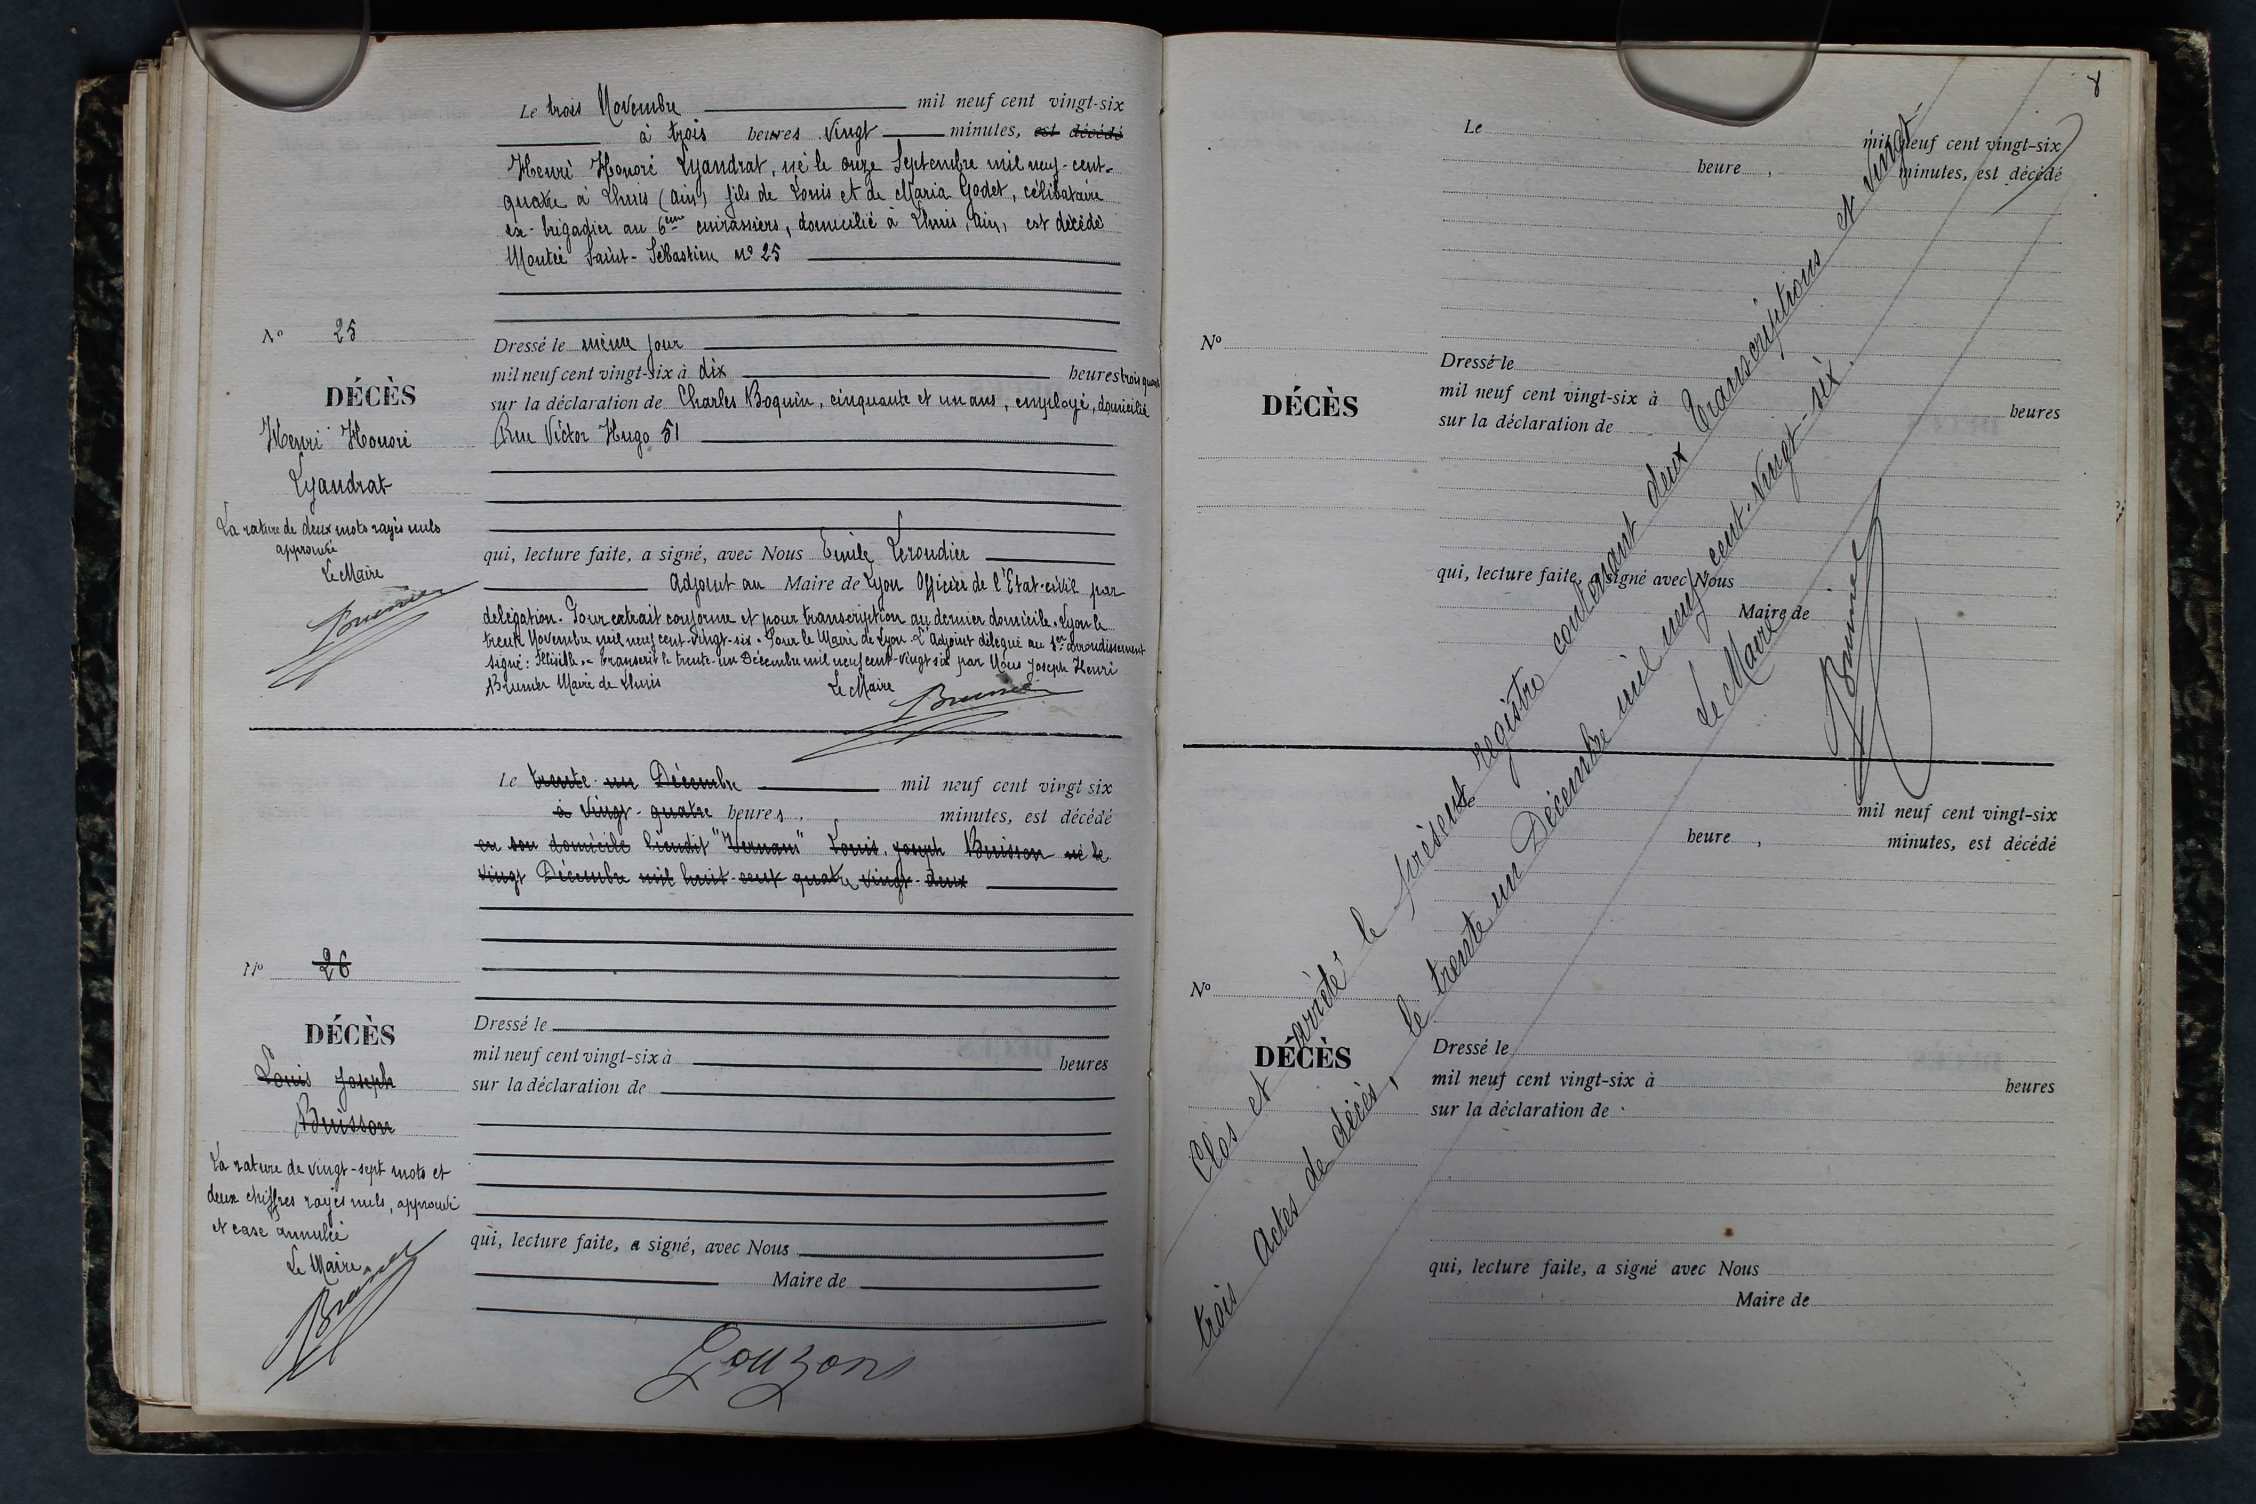 Le trois Novembre mil neuf cent vingt-six
à trois heures vingt minutes, est décédé
Henri Honoré Lyandrat, né le onze Septembre mil neuf-cent-
quatre à Lhuis (Ain) fils de Louis et de Maria Godet, célibataire
ex-brigadier au 6ème cuirassiers, domicilié à Lhuis, Ain, est décédé
Montée Saint-Sébastien No 25
No 25
DÉCÈS
Henri Honoré
Lyandrat
La rature de deux mots rayés nuls
approuvée
Le Maire
Brunier
Dressé le même jour
mil neuf cent vingt-six à dix heures trois quarts
sur la déclaration de Charles Boquin, cinquante et un ans, employé, domicilié
Rue Victor Hugo 51
qui, lecture faite, a signé, avec Nous Emile Leroudier
Adjoint au Maire de Lyon Officier de l'Etat-civil par
délégation. Pour extrait conforme et pour transcription au dernier domicile. Lyon le
trente Novembre mil neuf cent-vingt-six. Pour le Maire de Lyon L'Adjoint délégué au 1er arrondissement
signé: Illisible.- Transcrit le trente-un Décembre mil neuf cent-vingt six par Nous Joseph Henri
Brunier Maire de Lhuis Le Maire
Brunier
Le trente-un Décembre mil neuf cent vingt six
à vingt-quatre heures, minutes, est décédé
en son domicile lieudit "Hernans" Louis Joseph Buisson né le
vingt Décembre mil huit-cent quatre vingt-deux
No 26
DÉCÈS
Louis Joseph
Buisson
La rature de vingt-sept mots et
deux chiffres rayés nuls, approuvé
et case annulée
Le Maire
Brunier
Dressé le
mil neuf cent vingt-six à heures
sur la déclaration de
qui, lecture faite, a signé, avec Nous
Maire de
Gouzons
8
Le mil neuf cent vingt-six
heure, minutes, est décédé
No
DÉCÈS
Dressé le
mil neuf cent vingt-six à heures
sur la déclaration de
qui, lecture faite, a signé avec Nous
Maire de
Clos et arrêté le présent registre contenant deux transcriptions et vingt-
trois actes de décès, le trente un Décembre mil neuf cent-vingt-six.
Le Maire
Brunier
Le mil neuf cent vingt-six
heure, minutes, est décédé
No
DÉCÈS
Dressé le
mil neuf cent vingt-six à heures
sur la déclaration de
qui, lecture faite, a signé avec Nous
Maire de